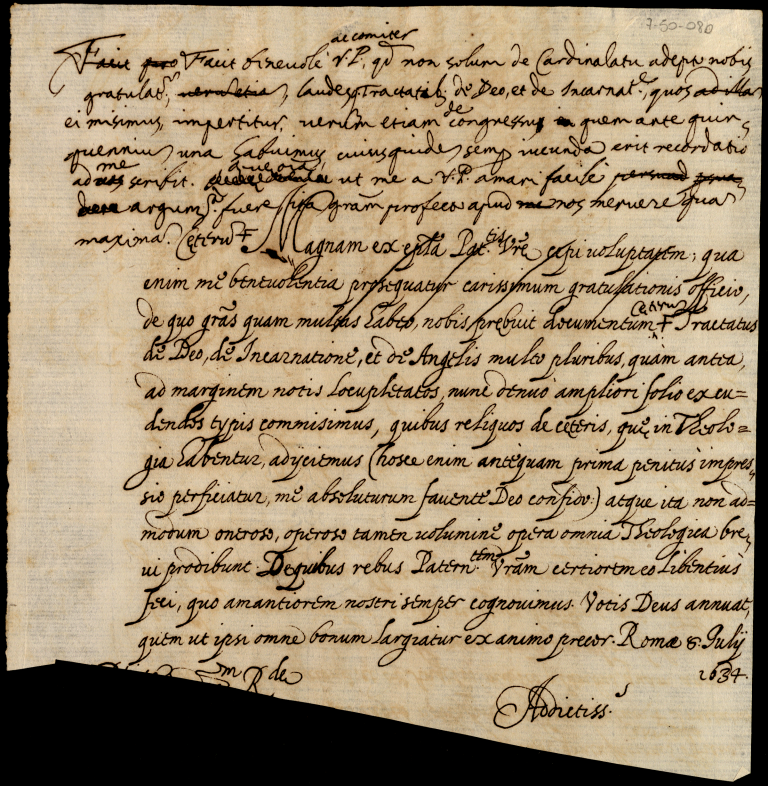 7-50-080
ac comiter
Facit pro Facit benevolè V. P., qđ non solum de Cardinalatu adepto nobis
gratulat.r, laudes Tractatib. de Deo, et de Incarnat.e, quos ad illam
ei misimus, impertitur, verum etiam de congressus in quem ante quin-
quennium una habuimus cuiusquidem semp iucunda erit recordatio
me
ad scribit. ut me a V. P. amari facilè
argum. fuere. Ista gram profecto apud me nos meruere quam
maxima. Ceterum +
Magnam ex epla Pat.tis Vre cepi voluptatem; qua
enim me benevolentia prosequatur carissimum gratulationis officio,
de quo gras quam multas habeo, nobis prebuit documentum. Ceterum + Tractatus
de Deo, de Incarnatione, et de Angelis multo pluribus, quàm antea,
ad marginem notis locupletatos, nunc denuò ampliori folio excu=
dendos typis commisimus, quibus reliquos de ceteris, que in Theolo=
gia habentur, adijciemus (hosce enim antequam prima penitus impres-
sio perficiatur, me absoluturum favente Deo confido:) atque ita non ad=
modum oneroso, operoso tamen volumine opera omnia Theologica bre-
vi prodibunt. De quibus rebus Patern.tem Vram certiorem eo libentius
feci, quo amantiorem nostri semper cognovimus. Votis Deus annuat,
quem ut ipsi omne bonum largiatur ex animo precor. Romæ 8. Julij
1634.
Addictiss.s